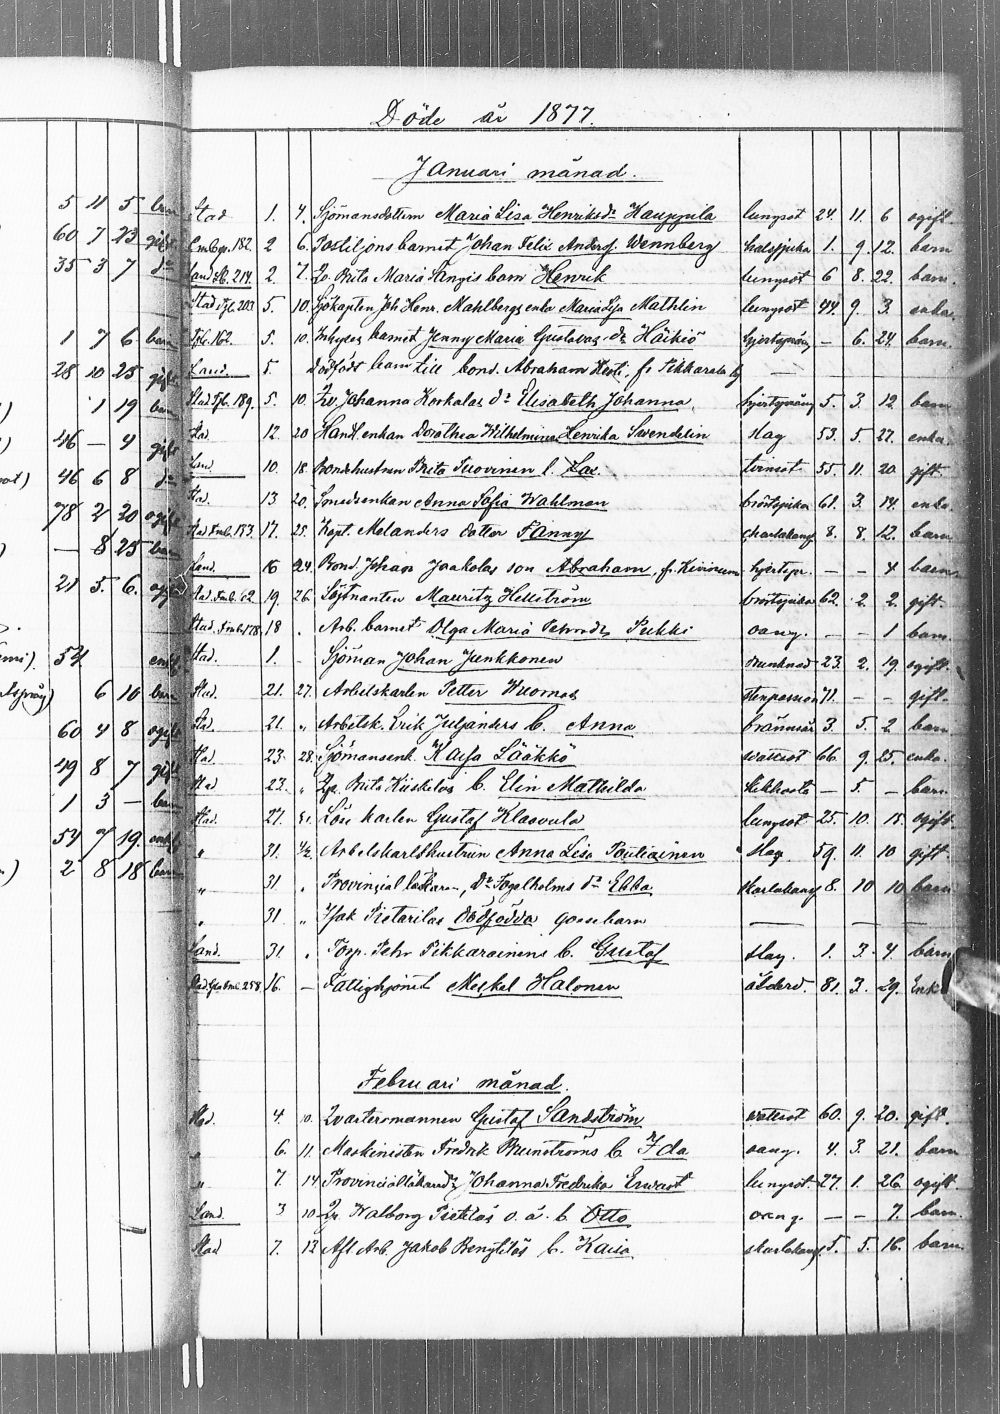 Döde år 1877.
Januari månad.
5 11 5 barn
Stad 1. 4. Sjömansdottern Maria Lisa Henriksdr Kauppila lungsot 24. 11. 6 ogift.
60 7 23 gift
182. 2 6. Postiljons barnet Johan Felix Andersf. Wennberg halssjuka 1. 9. 12. barn
35 3 7 do
Land 214. 2. 7. Qv. Brita Maria Sangis barn Henrik lungsot 6 8. 22. barn.
Stad 203. 5. 10. Sjökapten Joh. Henr. Mahlbergs enka Maria Lisa Mathlin lungsot 44. 9. 3. enka.
1 7 6 barn
162. 5. 10. Inhyses barnet Jenny Maria Gustava dr Häikiö hjertsprång — 6. 24. barn.
28 10 25 gift
Land. 5. Dödfödt barn till bond. Abraham fr Pikkarala by — — —
1 19 barn
Stad 189. 5. 10. Qv. Johanna Korkalas dr Elisabeth Johanna, hjertsprång 5. 3. 12. barn
46 — 4 gift
Stad. 12. 20 Handl. enkan Dorothea Wilhelmina Henrika Swendelin slag 53. 5. 27. enka.
46 6 8 do
Land. 10. 18. Bondehustrun Brita Tuovinen f. tvinsot. 55. 11. 20. gift.
78 2 20 ogift
Stad. 13 20. Smedsenkan Anna Sofia Wahlman bröstsjuka 61. 3. 14. enka.
— 8 25 barn
Stad 153. 17. 25. Kapt. Melanders dotter Fanny skarlakansf 8. 8. 12. barn
21 5. 6. ogift
Land. 16 24. Bond. Johan Jaakolas son Abraham, fr. Kiviniemi hjertspr. — — 4 barn
Stad. 62. 19. 26. Löjtnanten Mauritz Hellström bröstsjuka 62. 2. 2. gift.
Stad. 178. 18 „ Arb. barnet Olga Maria Petersdr Pukki oang. — — 1 barn.
54 enkl
Stad. 1. - Sjöman Johan Junkkonen drunknad 23. 2. 19 ogift.
6 10 barn
Stad. 21. 27. Arbetskarlen Petter Kuomas stenpassion 71. — — gift.
60 4 8 ogift
Stad. 21. „ Arbetsk. Erik Juljanders b. Anna brännsår 3. 5. 2. barn
49 8 7 gift
Stad. 23. 28. Sjömansenk. Kaisa Lääkkö wattsot 66. 9. 25. enka.
1 3 — barn
Stad 23. „ Qv. Brita Kiiskiläs b. Elin Mathilda stickhosta — 5. — barn.
Stad. 27. 31. Lösekarlen Gustaf Klaavula lungsot 25. 10. 15. ogift.
54 7 19. enkl
„ 31. 4/2. Arbetskarlshustrun Anna Lisa Pouliainen slag 59. 11. 10 gift.
2 8 18 barn
„ 31. „ Provincial läkaren, Dr Fogelholms dr Ebba skarlakansf 8. 10 10 barn
„ 31 „ Isak Pietarilas dödfödda gossebarn — — —
Land. 31. „ Torp. Pehr Pikkarainens b. Gustaf slag. 1. 3. 4. barn
Stad. 258. 16. — Fattighjonet Mickel Halonen ålderd. 81. 3. 29. Enkl
Februari månad.
Stad. 4. 10. Qvartersmannen Gustaf Sandström wattsot 60. 9. 20. gift.
„ 6. 11. Maskinisten Fredrik Brunströms b. Ida oang. 4. 3. 21. barn
„ 7. 14 Provincialläkaredr Johanna Fredrika Ervast lungsot. 27. 1. 26. ogift.
Land. 3 10 Qv. Walborg Pietiläs o.ä. b. Otto oang. — — 7. barn.
Stad 7. 13. Afl. Arb. Jakob Bengtiläs b. Kaisa skarlakansf. 5. 5. 16. barn.